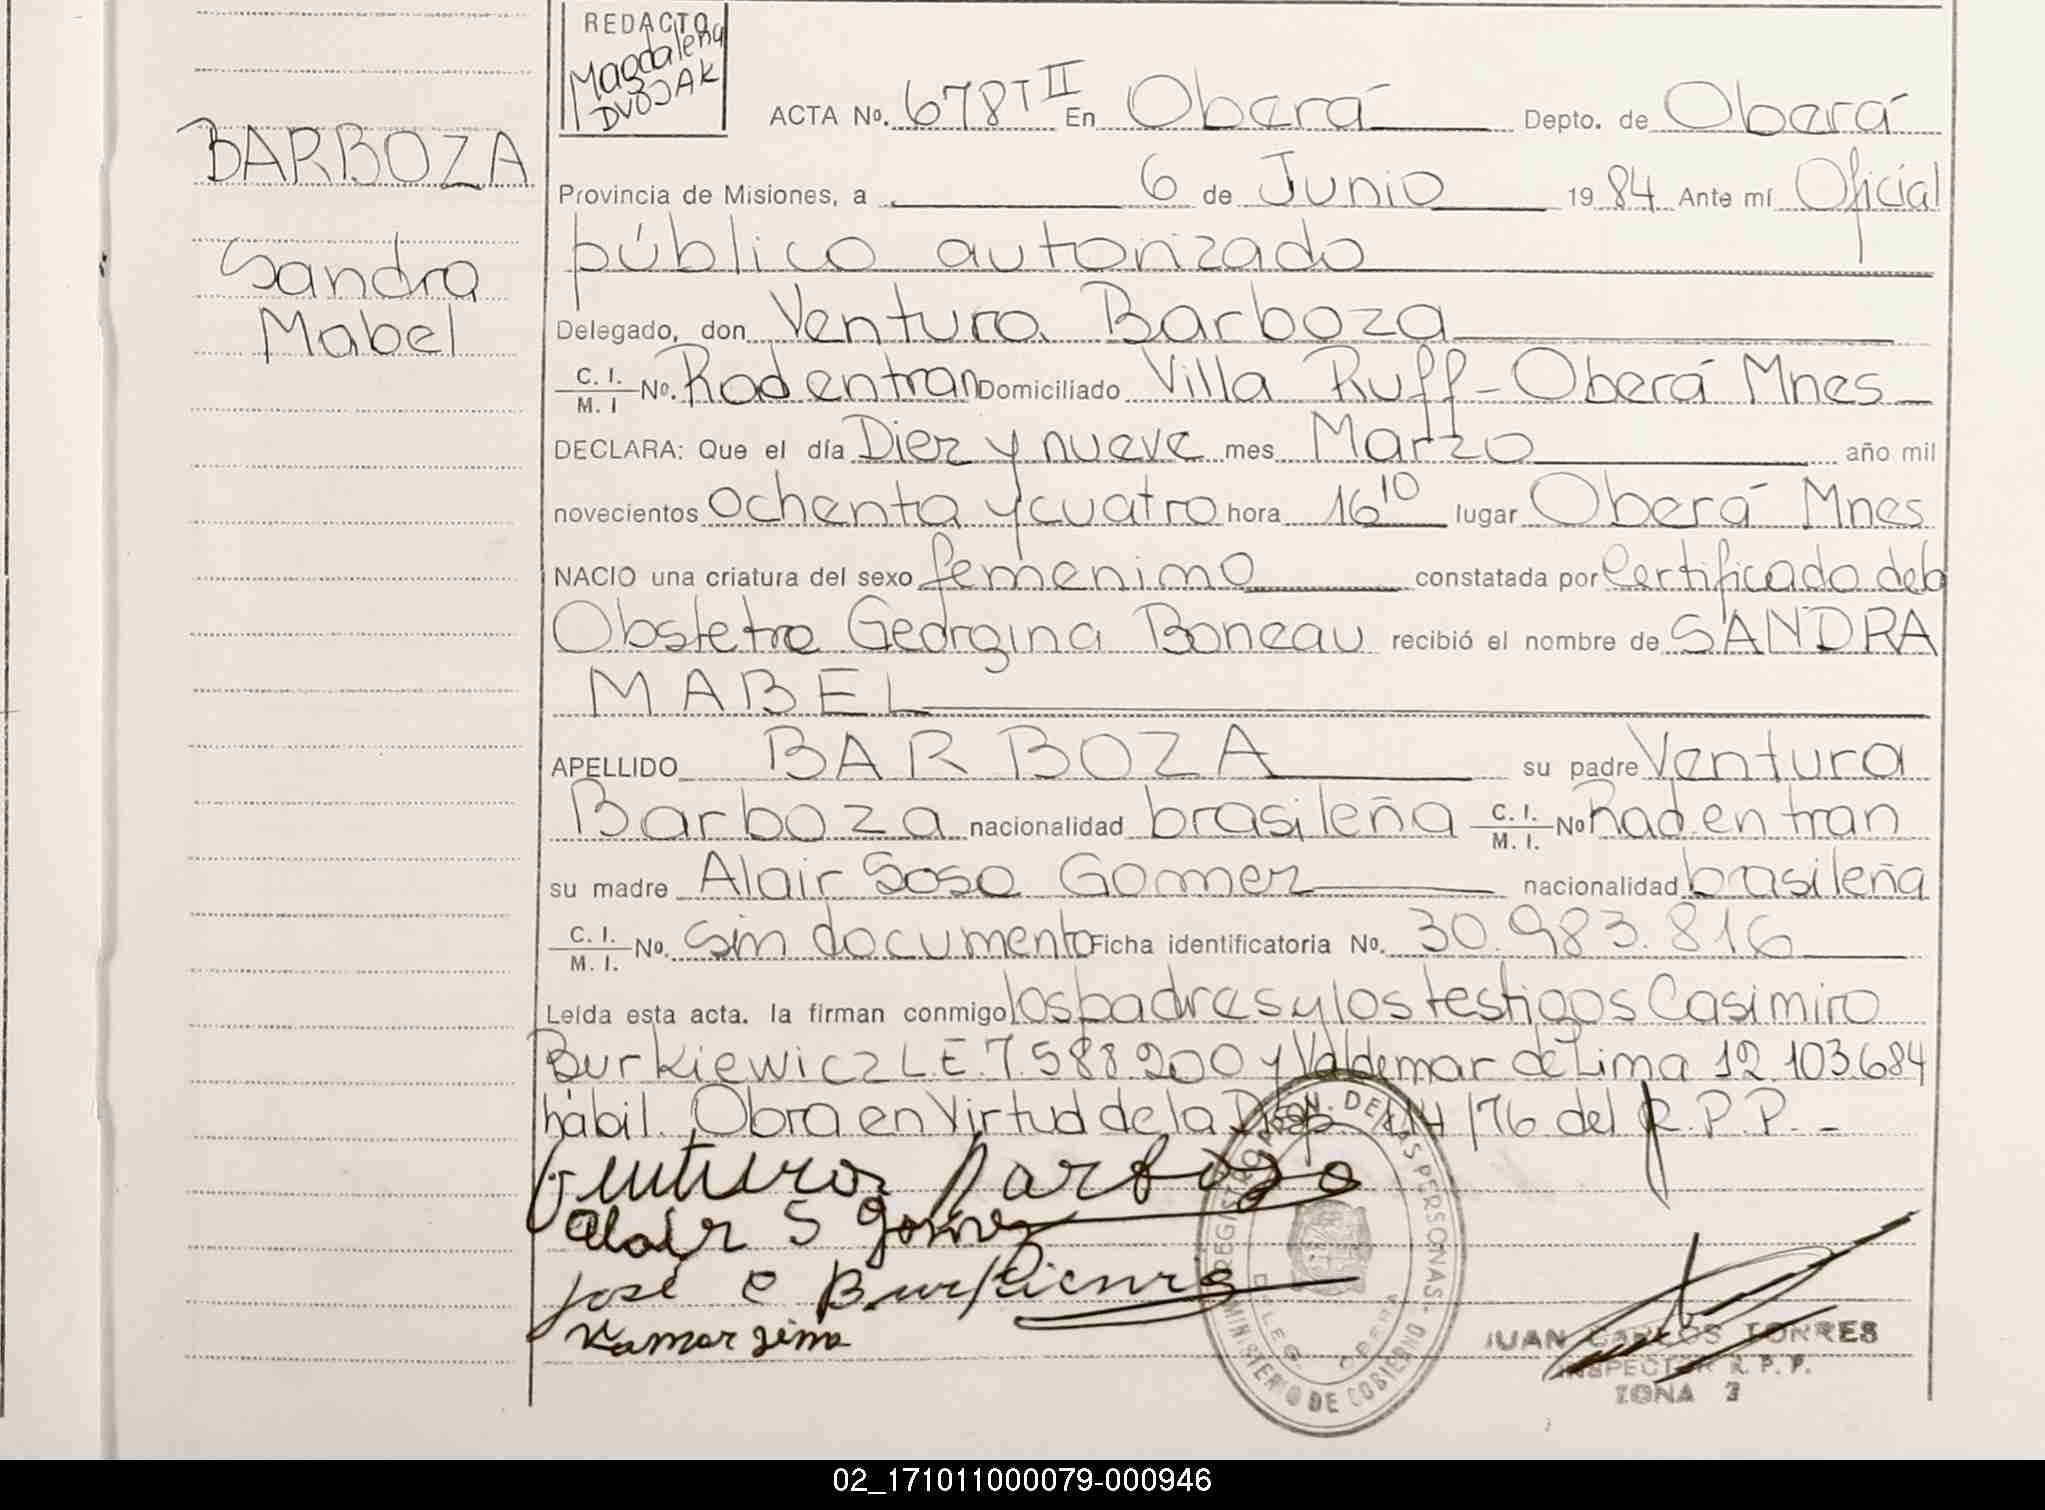 REDACTO
Magdalena
DVOJAK
BARBOZA
Sandra
Mabel
ACTA Nº. 678 T II En Oberá Depto. de Oberá
Provincia de Misiones, a 6 de Junio 1984 Ante mí Oficial
público autorizado
Delegado, don Ventura Barboza
C. I. / M. I Nº. Rad en tran Domiciliado Villa Ruff - Oberá Mnes
DECLARA: Que el día Diez y nueve mes Marzo año mil
novecientos ochenta y cuatro hora 16 10 lugar Oberá Mnes
NACIO una criatura del sexo femenino constatada por Certificado de la
Obstetra Georgina Boneau recibió el nombre de SANDRA
MABEL
APELLIDO BARBOZA su padre Ventura
Barboza nacionalidad brasileña C. I. / M. I. Nº Rad en tran
su madre Alair Sosa Gomez nacionalidad brasileña
C. I. / M. I. Nº. Sin documento Ficha identificatoria Nº. 30.983.816
Leída esta acta. la firman conmigo los padres y los testigos Casimiro
Burkiewicz L.E. 7.588.200 y Valdemar de Lima 12.103.684
hábil. Obra en Virtud de la Disp /76 del R.P.P. -
Ventura Barboza
Alair S Gomez
José C Burkiewis
lima
REGISTRO DE LAS PERSONAS
MINISTERIO DE GOBIERNO
DELEG. OBERA
JUAN CARLOS TORRES
INSPECTOR R. P. P.
ZONA 3
02_171011000079-000946